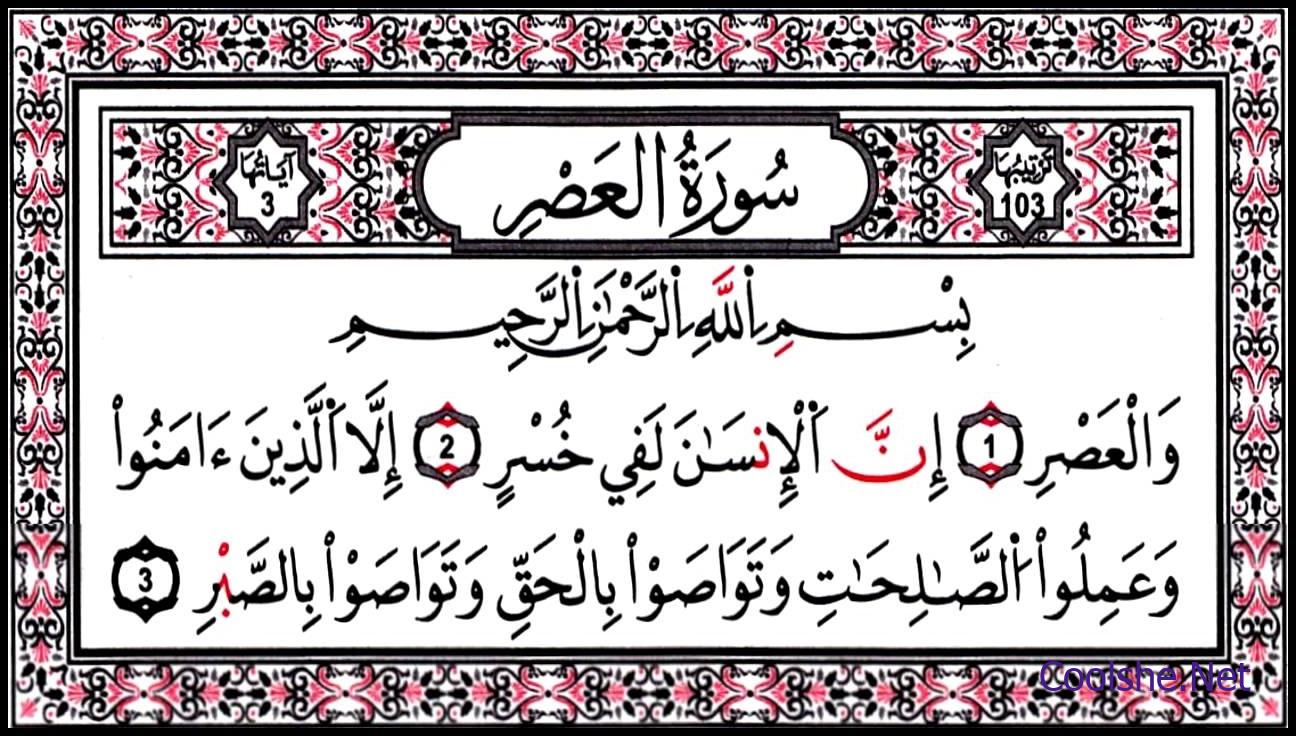 ترتيبها 103
سُورَةُ العَصْرِ
آيَاتُهَا 3
بِسْمِ اِ۬للَّهِ اِ۬لرَّحْمَٰنِ اِ۬لرَّحِيمِ
وَالْعَصْرِ 1 إِنَّ اَ۬لْإِنسَٰنَ لَفِي خُسْرٍ 2 إِلَّا اَ۬لَّذِينَ ءَامَنُواْ
وَعَمِلُواْ اُ۬لصَّٰلِحَٰتِ وَتَوَاصَوْاْ بِالْحَقِّ وَتَوَاصَوْاْ بِالصَّبْرِ 3
Coolshe.Net